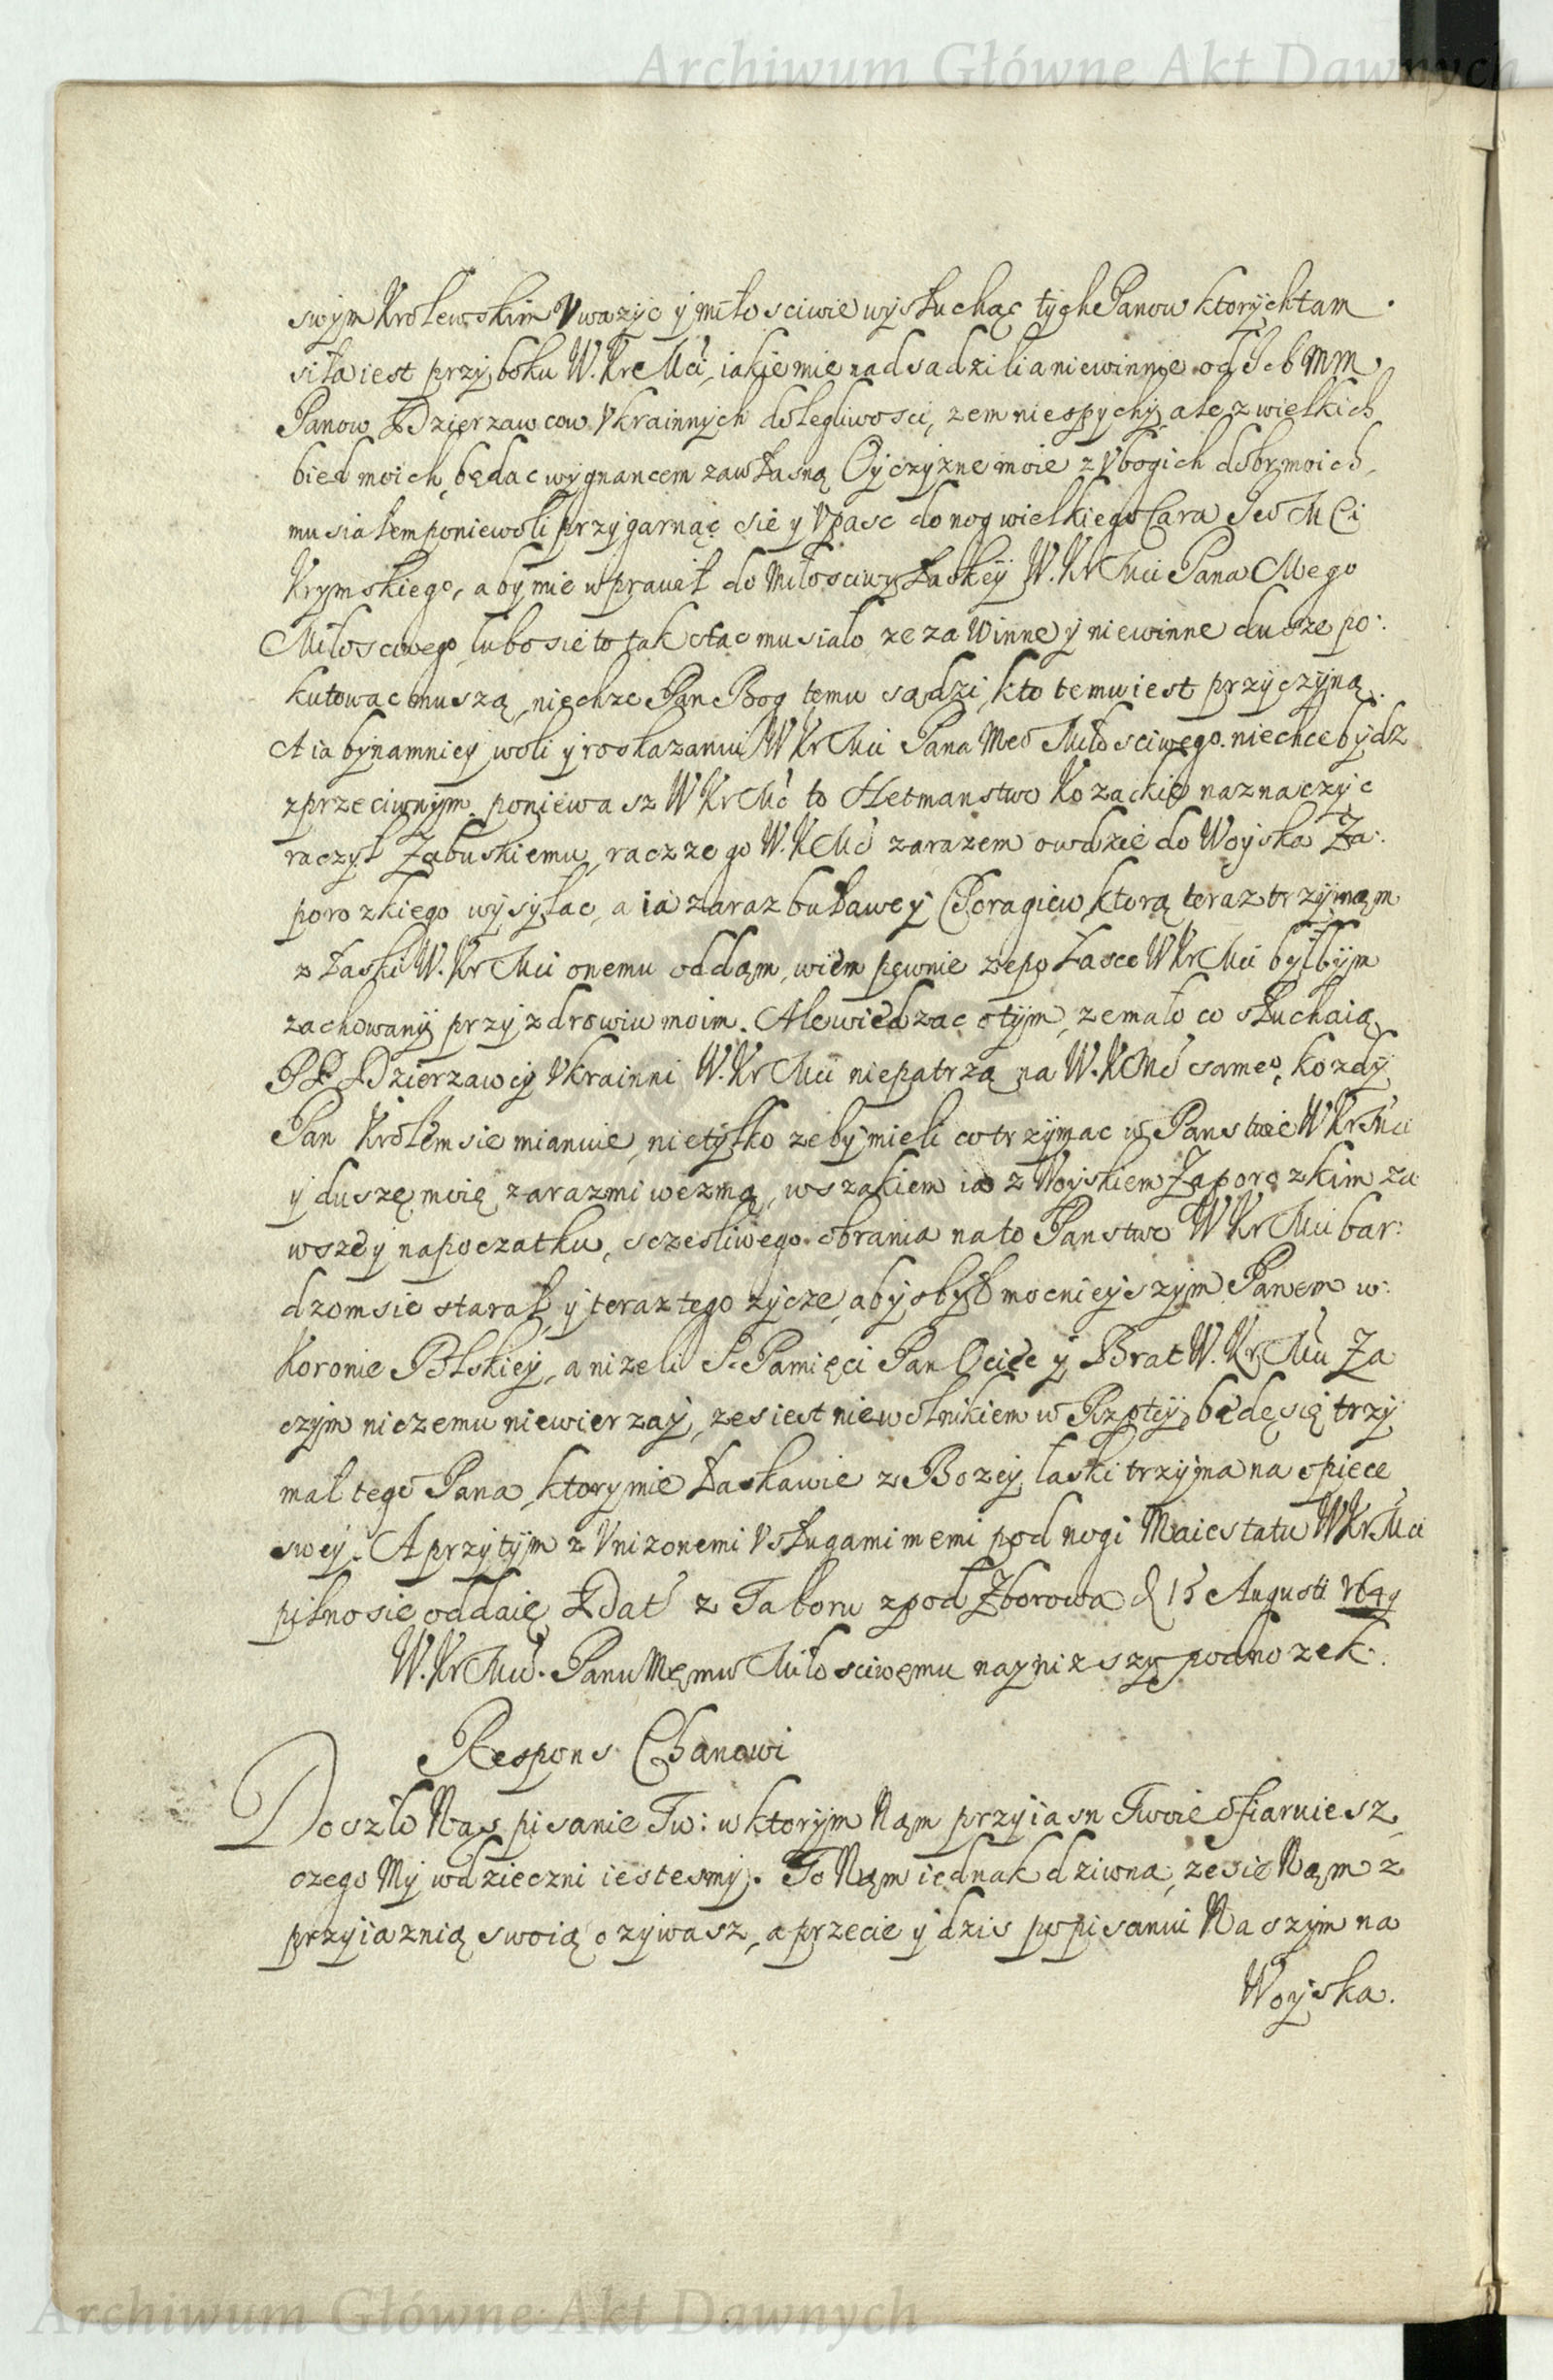 Archiwum Główne Akt Dawnych
swym Krolewskim Vwazyc y miłosciwie wysłuchac tych Panow ktorych tam
siła iest przy boku W. Kr Mci, iakie mie nadsadzili a niewinnie od Ich Mm
Panow Dzierzawcow Vkrainnych dolegliwosci, zem nie z pychy, ale z wielkich
bied moich, będac wygnancem za własną Oyczyzne moie z Vbogich dobr moich
musiałem poniewoli przygarnąc sie y Vpasc do nog wielkiego Cara Ieo M Ci
Krymskiego, aby mie wprawił do Miłosciwy Łaskey W. Kr Mci Pana Mego
Miłosciwego, lubo sie to tak stac musiało ze za Winne y niewinne dusze po:
kutowac muszą, niechze Pan Bog temu sądzi, kto temu iest przyczyną.
A ia bynamniey woli y roskazaniu W Kr Mci Pana Meo Miłosciwego niechce bydz
zprzeciwnym. poniewasz W Kr Mc to Hetmanstwo Kozackie naznaczyc
raczył Zabuskiemu, racz ze go W. K Mc zarazem owdzie do Woyska Za:
porozkiego wysyłac, a ia zaraz buławe y Choragiew, ktorą teraz trzymam
z łaski W. Kr Mci onemu oddam, wiem pewnie ze po Łasce W Kr Mci byłbym
zachowany przy zdrowiu moim. Ale wiedzac o tym, ze mało co słuchaią
PP Dzierzawcy Vkrainni W. Kr Mci niepatrzą na W. K Mc sameo, kozdy
Pan Krolem sie mianuie, nietylko zeby mieli co trzymac w Panstwie W Kr Mci
y duszę moię zaraz mi wezmą, wszakiem ia z Woyskiem Zaporozkim za
wszdy napoczatku, sczesliwego obrania na to Panstwo W Kr Mci bar:
dzom sie starał y teraz tego zycze, abys był mocnieyszym Panem w:
Koronie Polskiey, a nizeli S. Pamięci Pan Ociec y Brat W. Kr Mci Za
czym niczemu niewierzay, zes iest niewolnikiem w Rzptey, będę się trzy
mał tego Pana, ktory mie Łaskawie z Bozey łaski trzyma na opiece
swey. A przy tym z Vnizonemi Vsługami memi pod nogi Maiestatu W Kr Mci
pilno sie oddaię Dat z Taboru zpod Zborowa d 15 Augusti 1649
W. Kr Mci. Panu Memu Miłosciwemu naynizszy podnozek.
Respons Chanowi
Doszło Nas pisanie Tw: w ktorym Nam przyiasn Twoie ofiaruiesz,
czego My wdzieczni iestesmy. To Nam iednak dziwna, ze sie Nam z
przyiaznią swoią ozywasz, a przecie y dzis po pisaniu Naszym na
Woyska.
Archiwum Główne Akt Dawnych